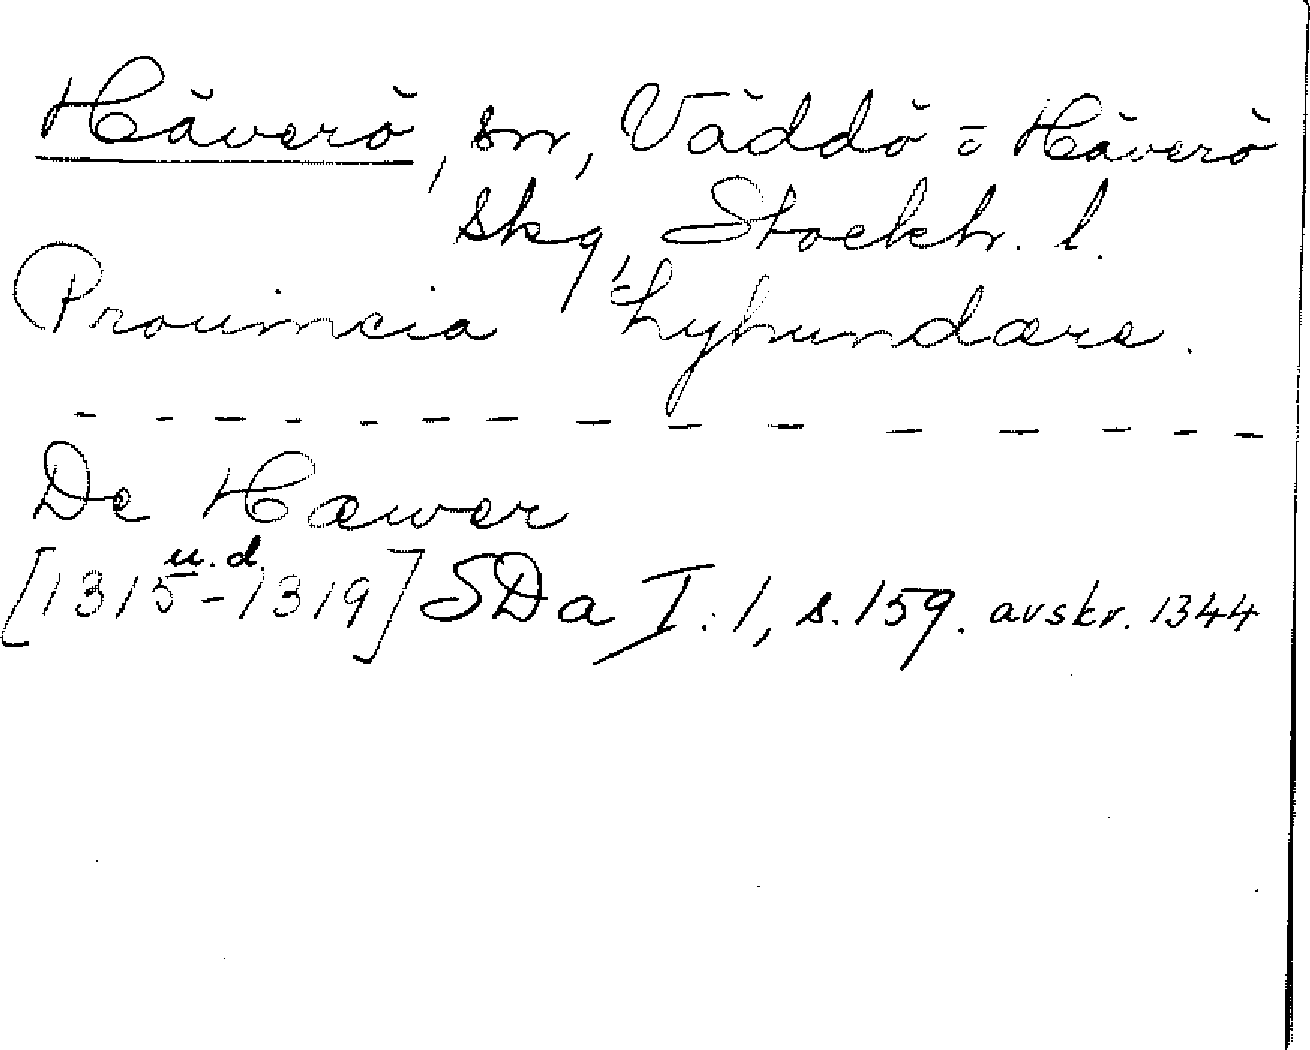 Häverö, sn, Väddö = Häverö
skg, Stockh. l.
Prouincia Lyhundære.
De Hæwer
[1315 u.d. - 1319] SDa I:1, s. 159. avskr. 1344